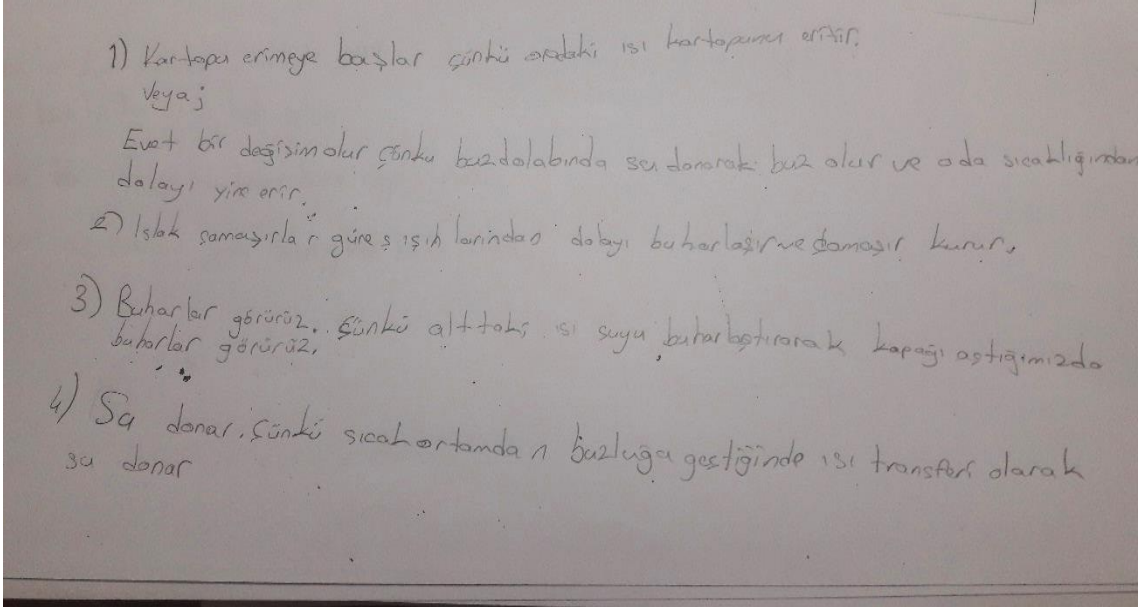 1) Kartopu erimeye başlar çünkü ordaki ısı kartopunu eritir.
Veya;
Evet bir değişim olur çünkü buzdolabında su donarak buz olur ve oda sıcaklığından
dolayı yine erir.
2) Islak çamaşırlar güneş ışıklarından dolayı buharlaşır ve çamaşır kurur.
3) Buharlar görürüz. Çünkü alttaki ısı suyu buharlaştırarak kapağı açtığımızda
buharlar görürüz.
4) Su donar. Çünkü sıcak ortamdan buzluğa geçtiğinde ısı transferi olarak
su donar